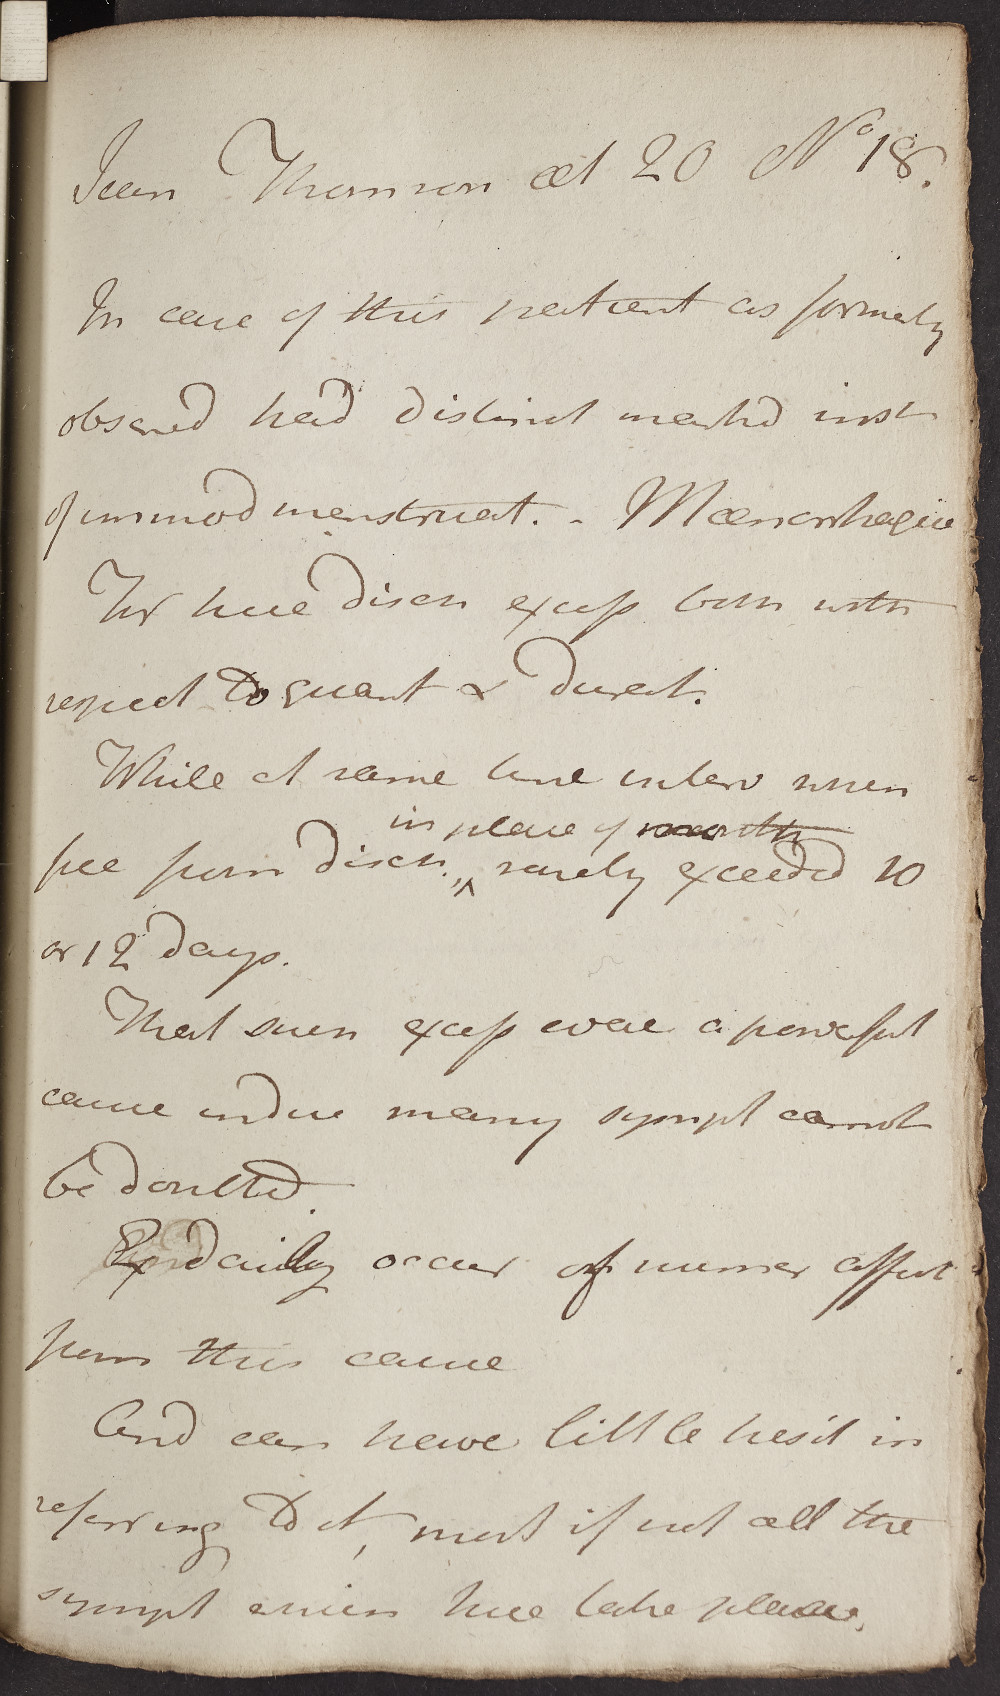 Jean Thomson æt 20 No 18.
In case of this patient as formerly
observed had distinct markd inst
of immod menstruat. - Mænorrhagia
For here disch excess both with
respect to quant & durat.
While at same time interv when
in place of month
free from disch. ^ rarely exceeded 10
or 12 days.
That such excess were a powerful
cause induc many sympt cannot
be doubted.
Exp daily occur of numer affect
from this cause
And can have little hesit in
referring to it, most if not all the
sympt which here take place.